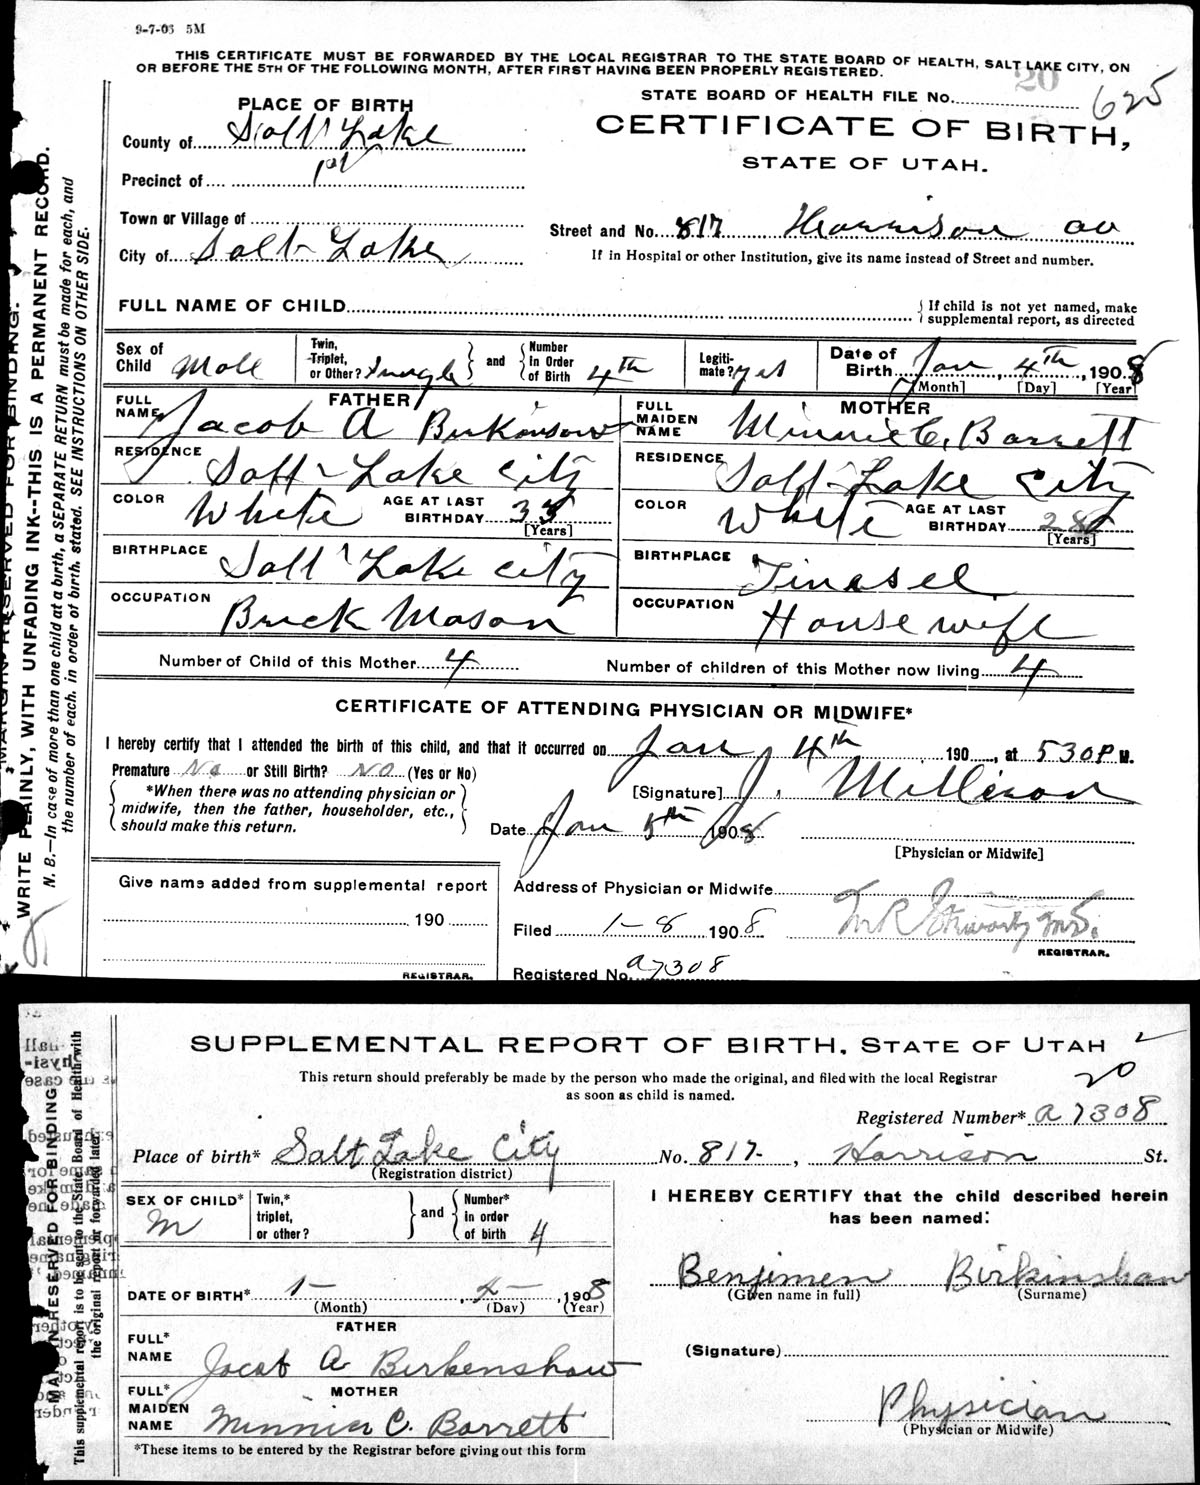 9-7-06 5M
THIS CERTIFICATE MUST BE FORWARDED BY THE LOCAL REGISTRAR TO THE STATE BOARD OF HEALTH, SALT LAKE CITY, ON
OR BEFORE THE 5TH OF THE FOLLOWING MONTH, AFTER FIRST HAVING BEEN PROPERLY REGISTERED.
20
STATE BOARD OF HEALTH FILE No. 625
PLACE OF BIRTH
CERTIFICATE OF BIRTH,
STATE OF UTAH.
County of Salt Lake
Precinct of 1st
Town or Village of
City of Salt Lake
Street and No. 817 Harrison av
If in Hospital or other Institution, give its name instead of Street and number.
FULL NAME OF CHILD
{ If child is not yet named, make
supplemental report, as directed
Sex of Child Male
Twin, Triplet, or Other? Single } and { Number in Order of Birth 4th
Legitimate? yes
Date of Birth Jan 4th, 1908
[Month] [Day] [Year]
FATHER
FULL NAME Jacob A Birkinsaw
RESIDENCE Salt Lake City
COLOR White AGE AT LAST BIRTHDAY 33
[Years]
BIRTHPLACE Salt Lake City
OCCUPATION Brick Mason
MOTHER
FULL MAIDEN NAME Minnie C. Barrett
RESIDENCE Salt Lake City
COLOR White AGE AT LAST BIRTHDAY 28
[Years]
BIRTHPLACE
OCCUPATION House wife
Number of Child of this Mother 4
Number of children of this Mother now living 4
CERTIFICATE OF ATTENDING PHYSICIAN OR MIDWIFE*
I hereby certify that I attended the birth of this child, and that it occurred on Jan 4th 190, at 530 P M.
Premature No or Still Birth? NO (Yes or No)
{ *When there was no attending physician or
midwife, then the father, householder, etc.,
should make this return. }
[Signature] J.
Date Jan 5th 1908
[Physician or Midwife]
Give name added from supplemental report
190
REGISTRAR.
Address of Physician or Midwife
Filed 1-8 1908
REGISTRAR.
Registered No. a7308
MARGIN RESERVED FOR BINDING.
WRITE PLAINLY, WITH UNFADING INK--THIS IS A PERMANENT RECORD.
N. B.—In case of more than one child at a birth, a SEPARATE RETURN must be made for each, and
the number of each, in order of birth, stated. SEE INSTRUCTIONS ON OTHER SIDE.
SUPPLEMENTAL REPORT OF BIRTH, STATE OF UTAH
20
This return should preferably be made by the person who made the original, and filed with the local Registrar
as soon as child is named.
Registered Number* a 7308
Place of birth* Salt Lake City No. 817, Harrison St.
(Registration district)
SEX OF CHILD* M
Twin,* triplet, or other? } and { Number* in order of birth 4
DATE OF BIRTH* 1 - 4 -, 1908
(Month) (Day) (Year)
FATHER
FULL* NAME Jacob A Birkenshaw
MOTHER
FULL* MAIDEN NAME Minnie C. Barrett
*These items to be entered by the Registrar before giving out this form
I HEREBY CERTIFY that the child described herein
has been named:
Benjimen Birkinshaw
(Given name in full) (Surname)
(Signature)
Physician
(Physician or Midwife)
MARGIN RESERVED FOR BINDING
This supplemental report is to be sent to the State Board of Health with
the original report or forwarded later.